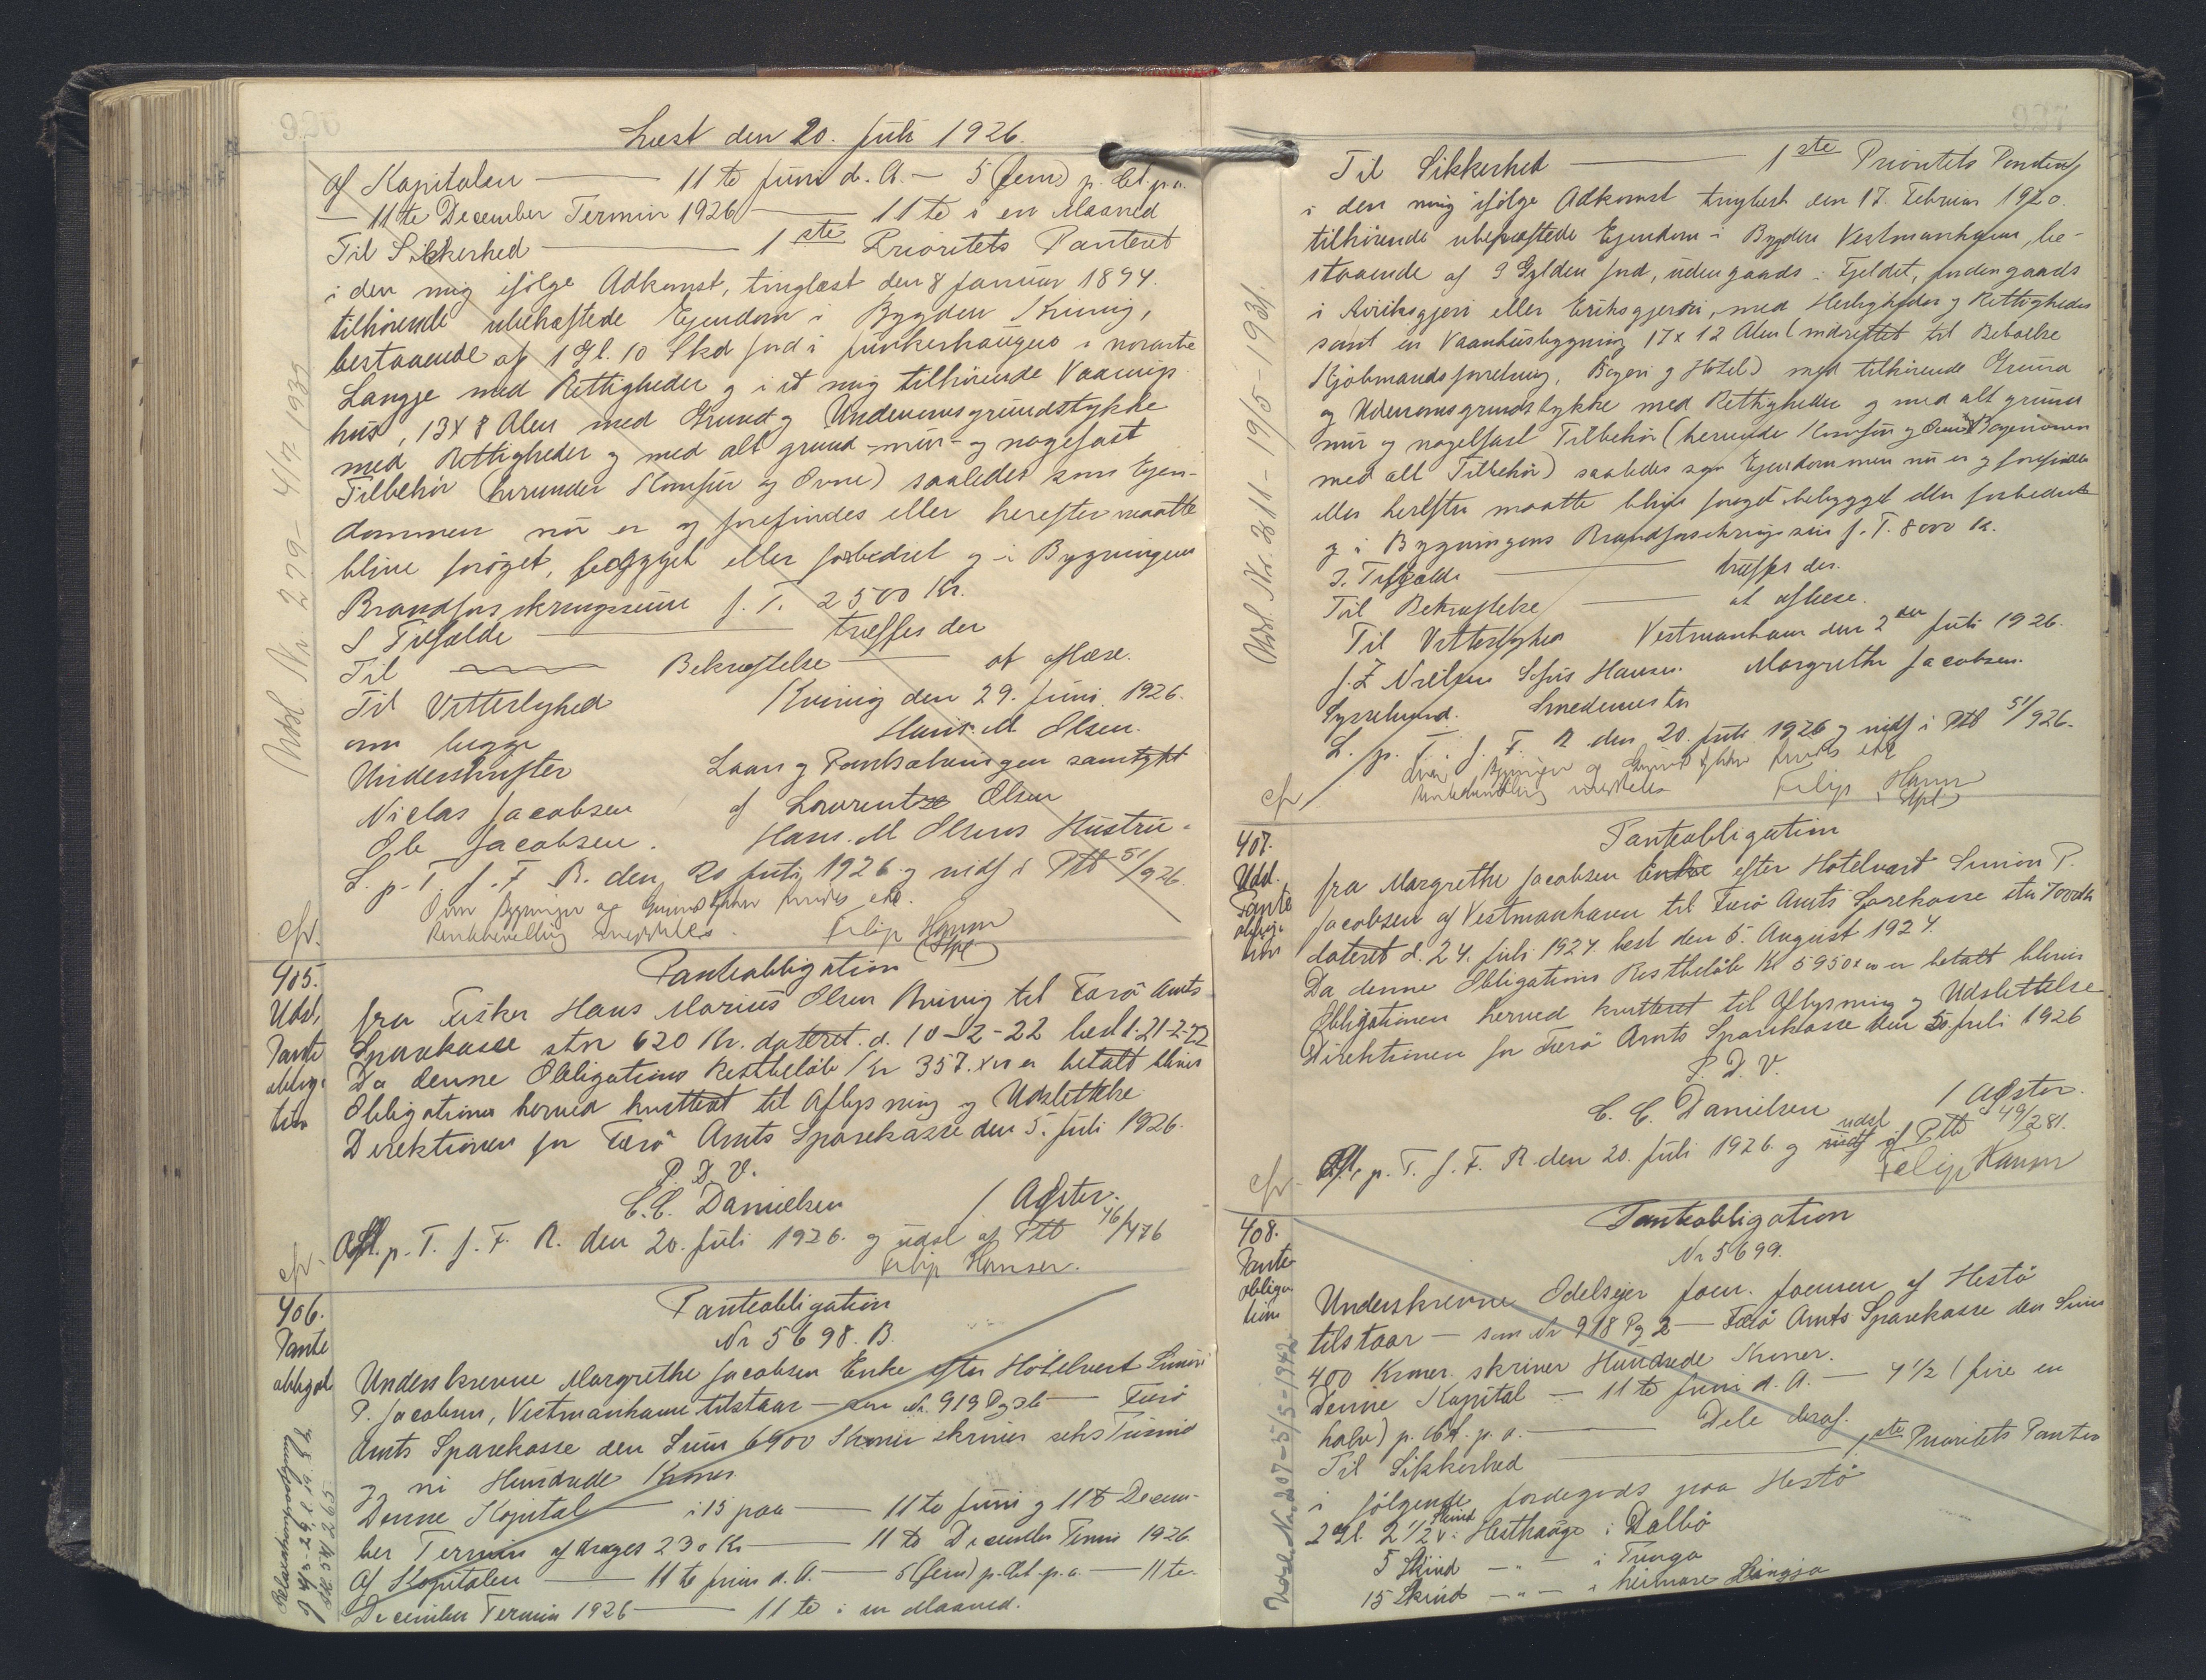 Læst den 20. Juli 1926.
af Kapitalen — 11te Juni d. A. — 5 (fem) p. Ct. p. a.
— 11te December Termin 1926 — 11te i en Maaned
Til Sikkerhed — 1ste Prioritets Panteret
i den mig ifölge Adkomst, tinglæst den 8 Januar 1894.
tilhörende ubehæftede Ejendom i Bygden Kvivig,
bestaaende af 1 Gl. 10 Skd Jord i Junkershaugens i norasta
Langje med Rettigheder og i et mig tilhörende Vaanings
hus, 13 x 8 Alen med Grund og Udenomsgrundstykke
med Rettigheder og med alt grund- mur- og nagefast
Tilbehör (herunder Komfur og Ovne) saaledes som Ejen-
dommen nu er og forefindes eller herefter maatte
blive foröget, bebygget eller forbedret og i Bygningens
Brandforsikringssum f. T. 2500 Kr.
I Tilfælde — træffes der
Til Bekræftelse — at aflæse.
Til Vitterlighed Kvivig den 29. Juni 1926.
om begge Hans. M Olsen.
Underskrifter Laan og Pantsætningen samtykt
Niclas Jacobsen af Laurentze Olsen
Ole Jacobsen. Hans. M Olsens Hustru.
L. p. T. f. F. R. den 20 Juli 1926 og indf i Ptb 51/926.
Over Bygninger og Grundstykker findes ikke
Realbehandling meddeles. Filip Hansen
cfr. (Spl)
405. Panteobligation
Udsl. fra Fisker Hans Marius Olsen Kvivig til Færö Amts
Pante Sparekasse stor 620 Kr. dateret. d. 10-2-22 læst d. 21-2-22
obliga Da denne Obligations Restbelöb Kr 357. xx er betalt bliver
tion Obligationen herved kvitteret til Aflysning og Udslettelse
Direktionen for Færö Amts Sparekasse den 5. Juli 1926.
P. D. V.
C. C. Danielsen / Agster.
Afl. p. T. f. F. R. den 20. Juli 1926. og udsl af Ptb 46/476
cfr. Filip Hansen.
406. Panteobligation
Pante Nr 5698. B.
obligat Underskrevne Margrethe Jacobsen Enke efter Hotelvært Simon
P. Jacobsen, Vestmanhavn tilstaar — som Nr. 919 Pg 26 — Færö
Amts Sparekasse den Sum 6900 Kroner skriver seks Tusind
og ni Hundrede Kroner
Denne Kapital — i 15 paa — 11te Juni og 11te Decem-
ber Termin afdrages 230 Kr — 11te December Termin 1926
Af Kapitalen — 11te Juni d. A. — 5 (fem) p. Ct. p. a. — 11te
December Termin 1926 — 11te i en Maaned.
Til Sikkerhed — 1ste Prioritets Panteret
i den mig ifölge Adkomst tinglæst den 17. Februar 1920.
tilhörende ubehæftede Ejendom i Bygden Vestmanhavn, be-
staaende af 9 Gylden Jord, udengaards: Fjeldet, indengaards
i Airiksgjeri eller Eriksgjerdri, med Herligheder og Rettigheder
samt en Vaanhusbygning 17 x 12 Alen (indrettet til Beboelse
Kjöbmandsforretning, Bageri og Hotel) med tilhörende Grund
og Udenomsgrundstykke med Rettigheder og med alt grund
mur og nagelfast Tilbehör (herunder Komfur og Ovne Bagerovnen
med alt Tilbehör) saaledes som Ejendommen nu er og forefindes
eller herefter maatte blive foröget bebygget eller forbedret
og i Bygningens Brandforsikringssum f. T. 8000 Kr.
I. Tilfælde — træffes der.
Til Bekræftelse — at aflæse.
Til Vitterlighed Vestmanhavn den 2den Juli 1926.
J. Z Nielsen Sofus Hansen. Margrethe Jacobsen.
Sysselmand. Smedemester
L. p. T. f. F. R den 20. Juli 1926 og indf i Ptb 51/926.
Over Bygninger og Grundstykker findes ikke
Realbehandling meddeles Filip Hansen
cfr. (Spl)
407. Panteobligation
Udsl. fra Margrethe Jacobsen Enke efter Hotelvært Simon P.
Pante Jacobsen af Vestmanhavn til Færö Amts Sparekasse stor 7000 Kr
obliga dateret d. 24. Juli 1924 læst den 5. August 1924.
tion Da denne Obligations Restbelöb Kr 5950 xx er betalt bliver
Obligationen herved kvitteret til Aflysning og Udslettelse
Direktionen for Færö Amts Sparekasse den 5 Juli 1926
P. D. V.
C. C. Danielsen / Agster.
Afl. p. T. f. F. R. den 20. Juli 1926. og udsl af Ptb 49/281.
cfr. Filip Hansen
408. Panteobligation
Pante Nr 5699.
obliga Underskrevne Odelsejer Joen. Joensen af Hestö
tion tilstaar — som Nr 918 Pg 2 — Færö Amts Sparekasse den Sum
400 Kroner skriver Hundrede Kroner.
Denne Kapital — 11te Juni d. A. — 4 1/2 (fire en
halv) p. Ct. p. a. — Dele deraf.
Til Sikkerhed — 1ste Prioritets Panteret
i fölgende Jordegods paa Hestö
2 Gl. 2 1/2 Skind i Hesthauge i Dalbö
5 Skind — " — i Trunga
15 Skind — " — i heimare Langja
Udsl. Nr 279 - 4/12 1935
Udsl. Nr. 211 - 19/5 - 1931.
Udsl. Nr. 207 - 5/5 - 1942